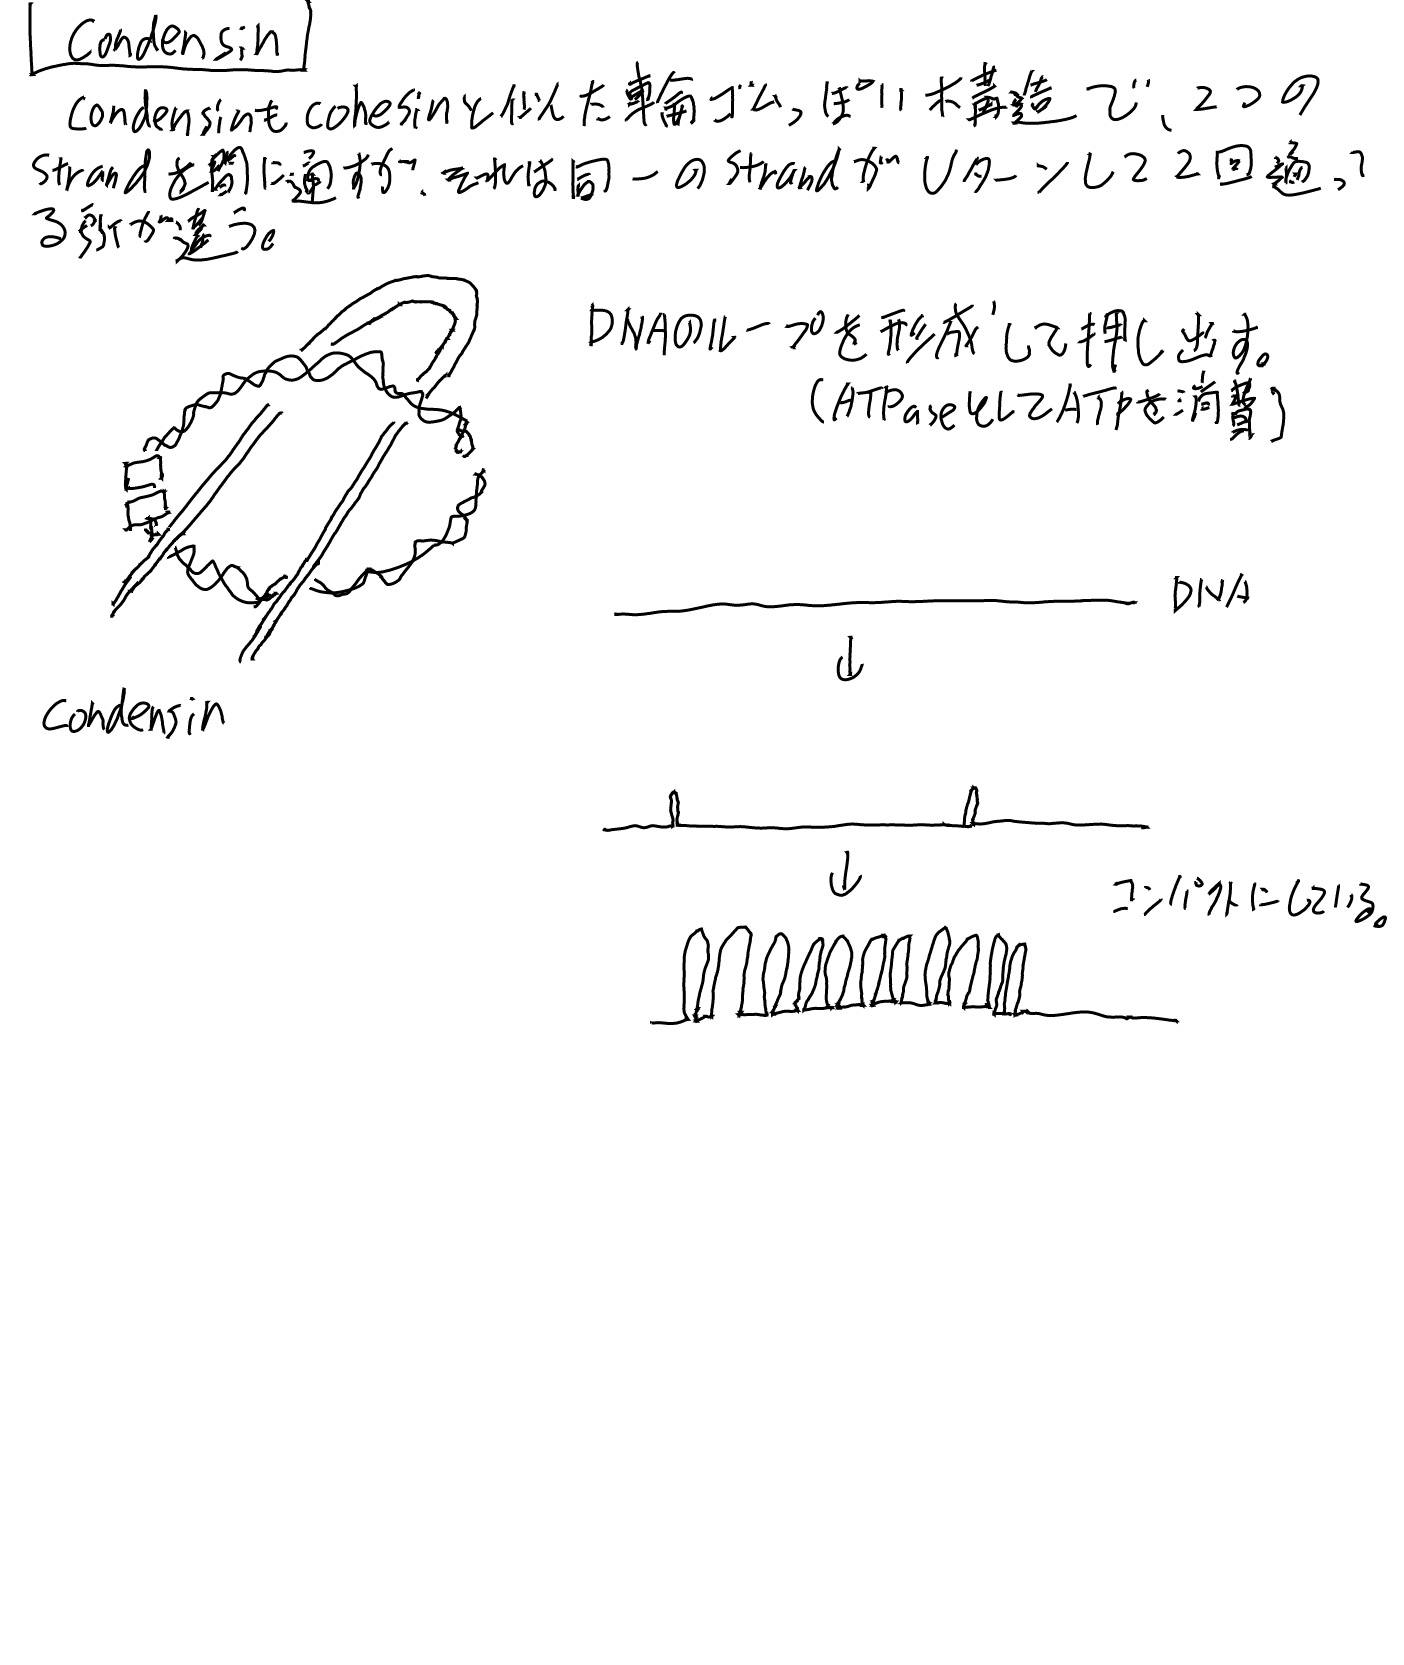 Condensin
condensinも cohesinと似た輪ゴムっぽい構造で、2つの
strandを間に通すが、それは同一のstrandがUターンして2回通って
る所が違う。
DNAのループを形成して押し出す。
(ATPaseとしてATPを消費)
DNA
condensin
コンパクトにしている。